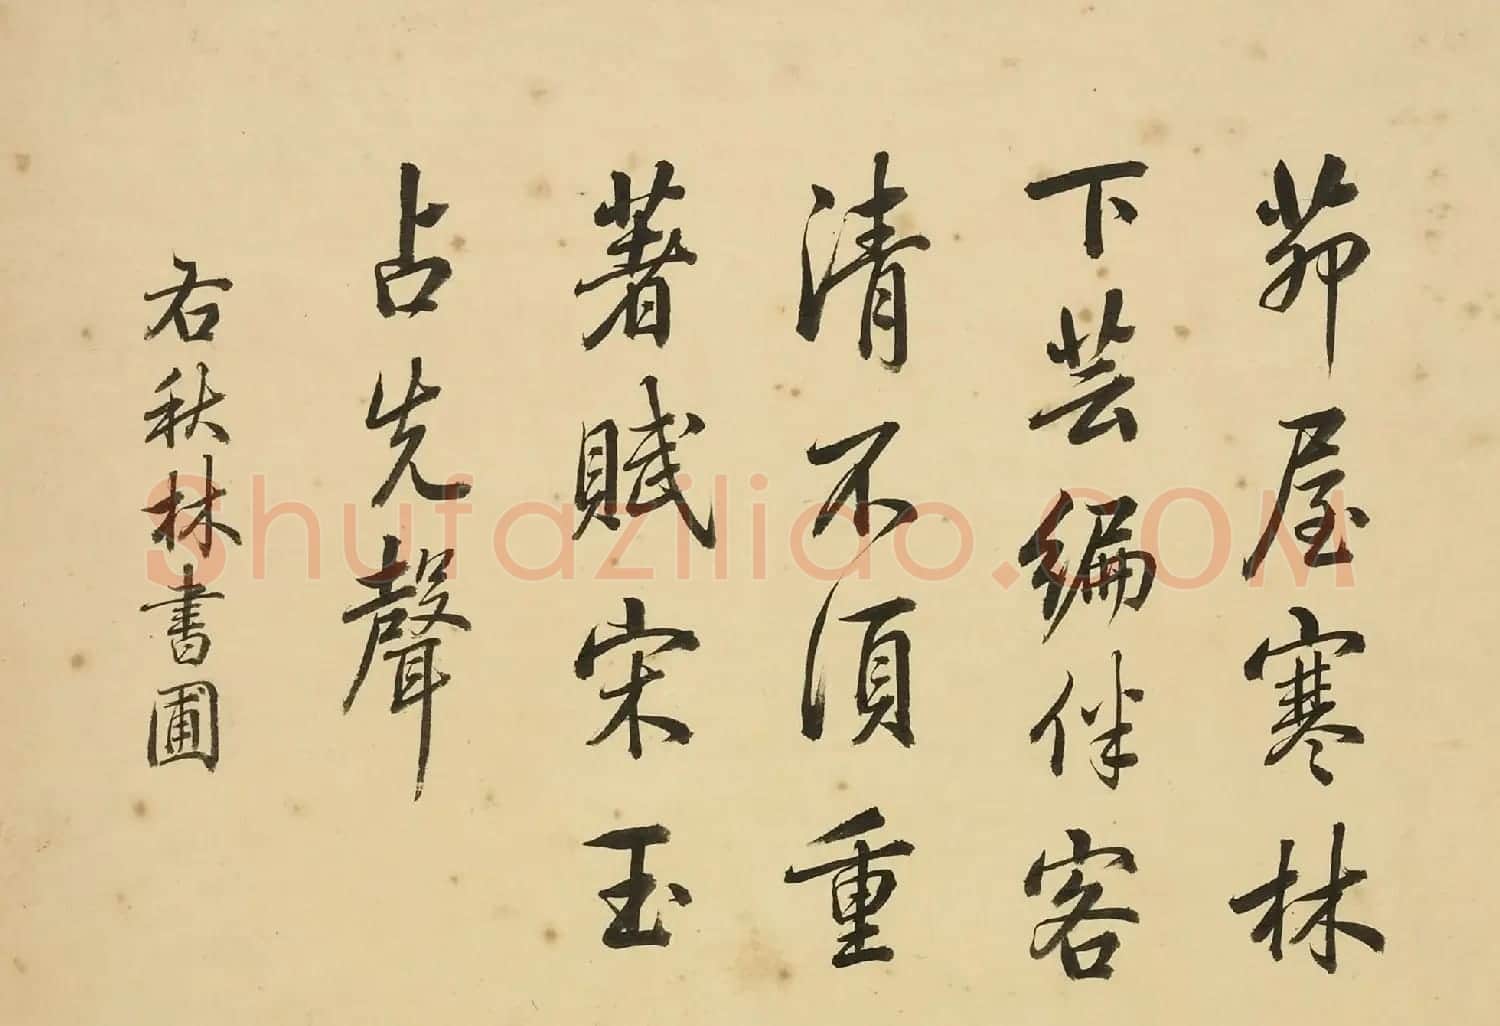 茆屋寒林
下芸編伴客
清不須重
著賦宋玉
占先聲
右秋林書圃
Shufazilido.COM